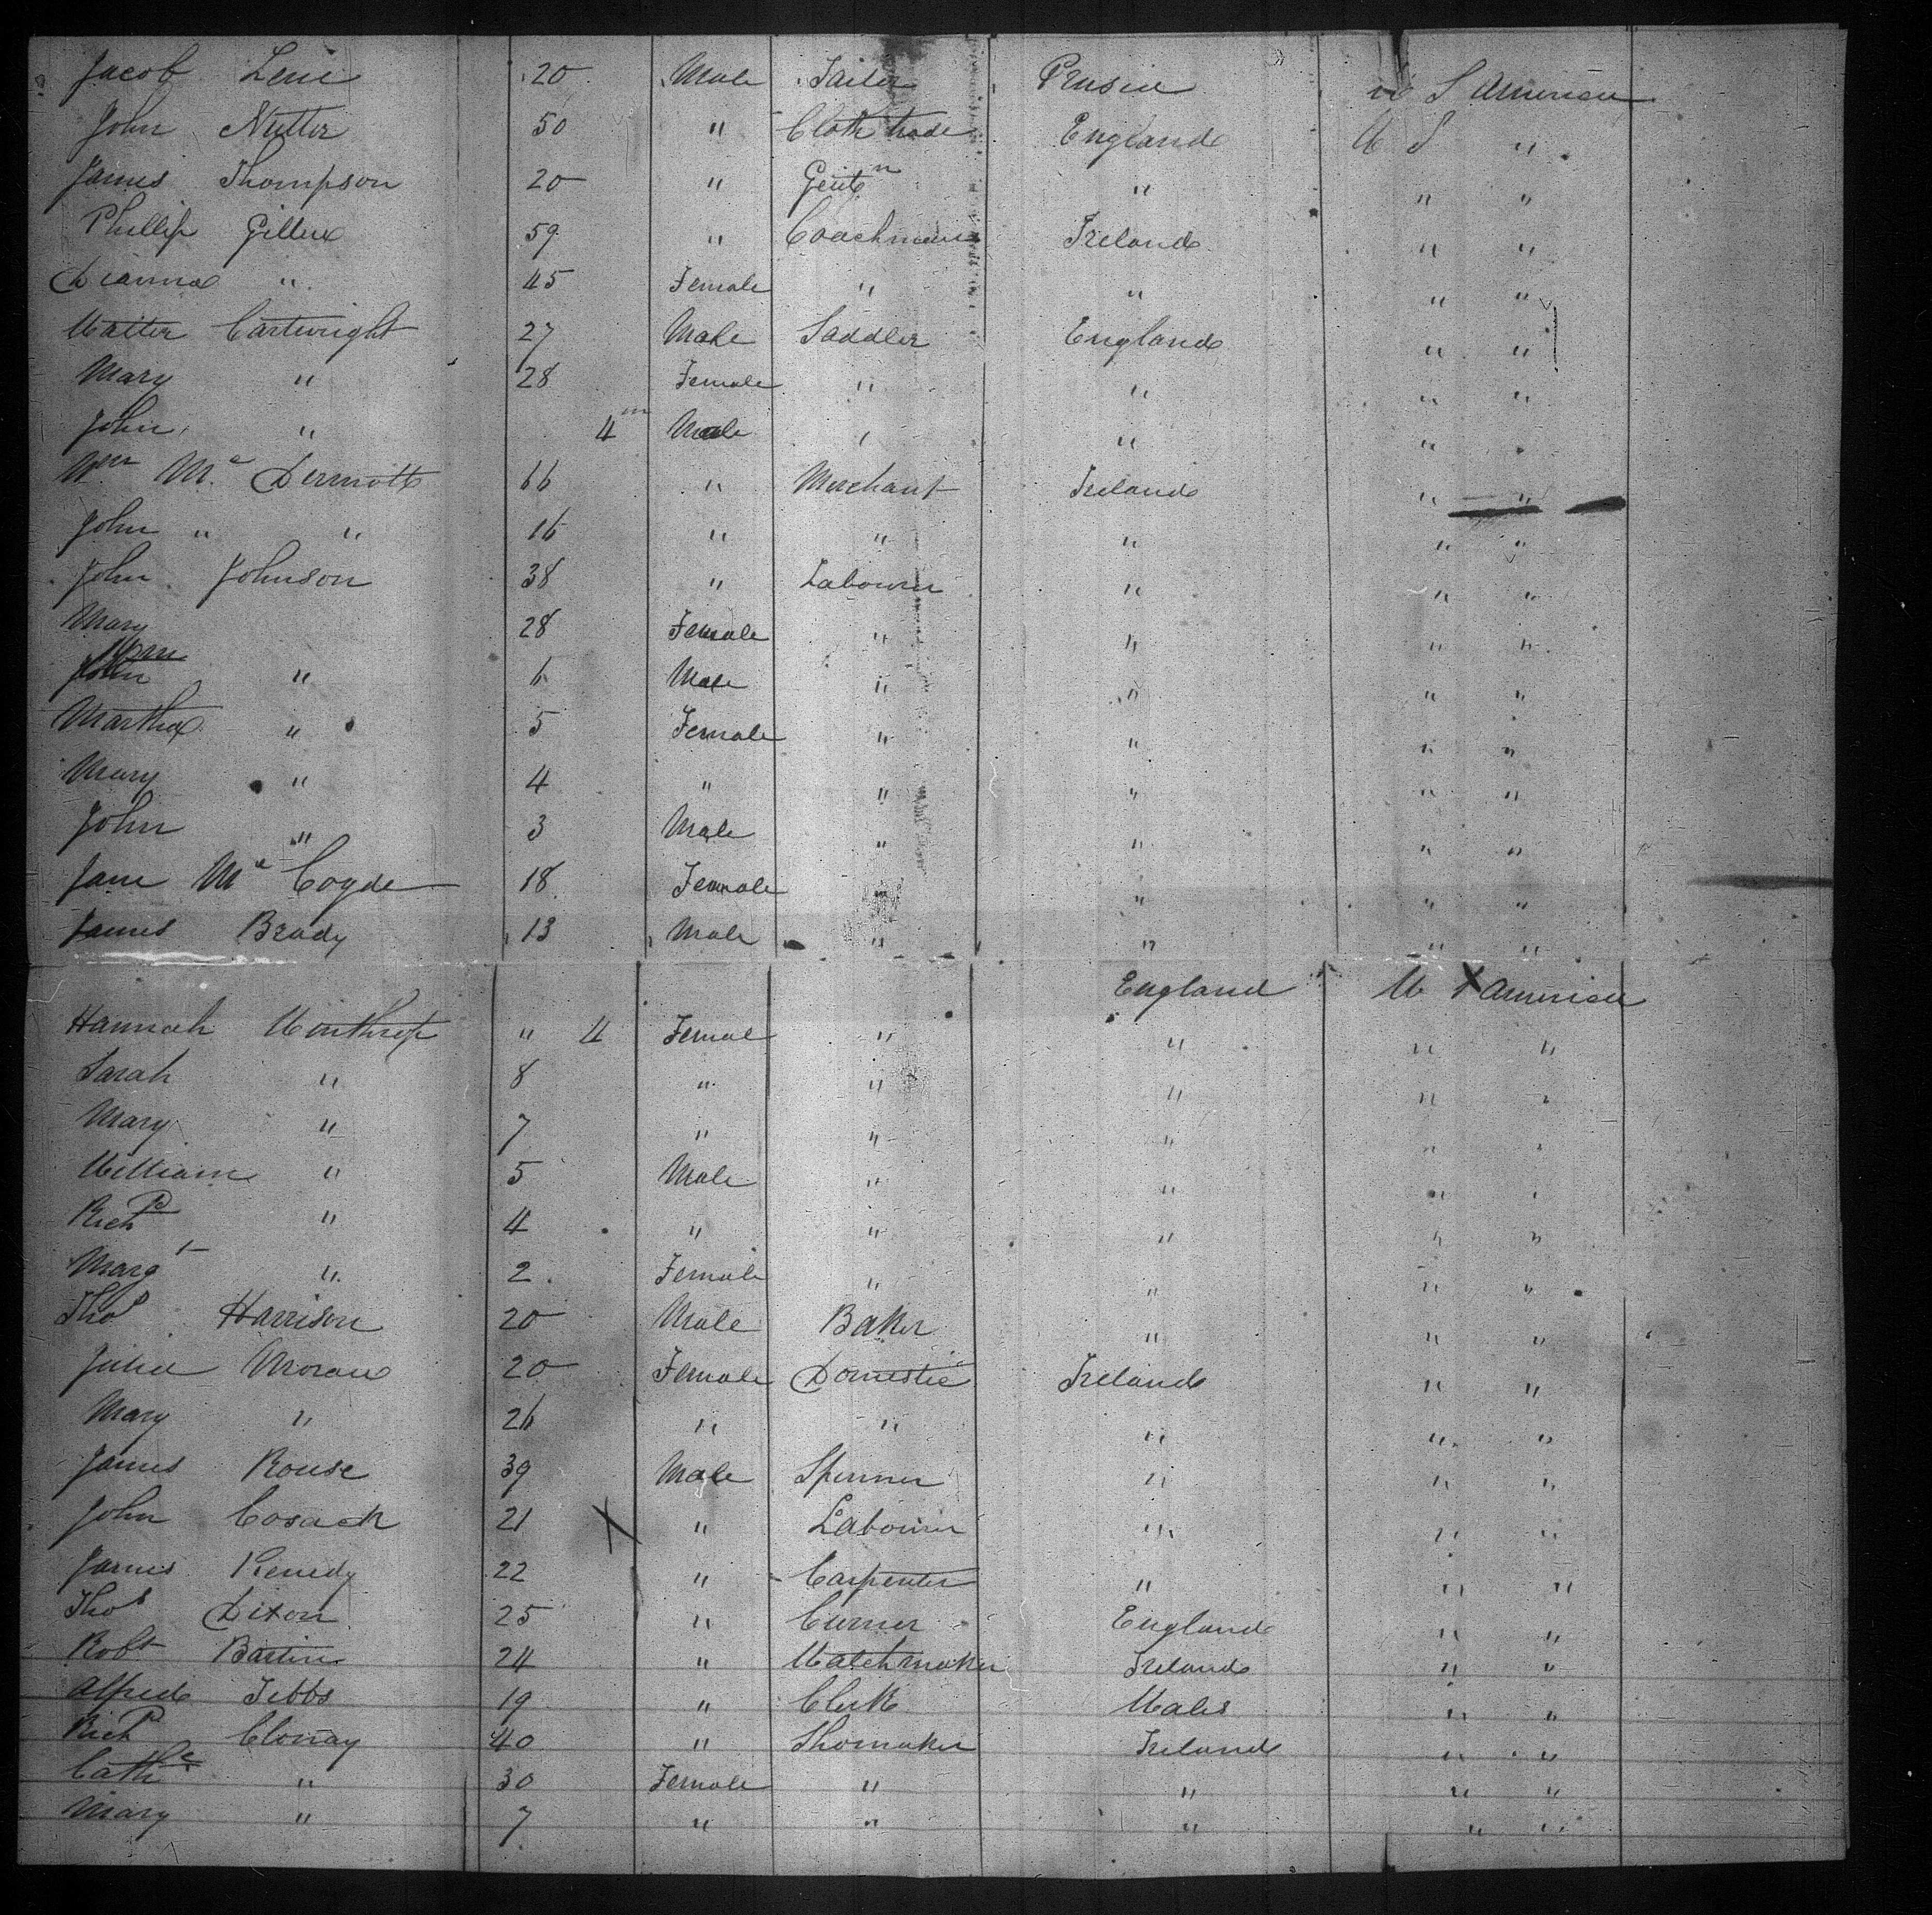 Jacob Levi 20 Male Tailor Prusia U S America
John Nutter 50 " Cloth trade England U S "
James Thompson 20 " Gentn " " "
Phillip Gillen 59 " Coachman Ireland " "
Dianna " 45 Female " " " "
Walter Cartwright 27 Male Saddler England " "
Mary " 28 Female " " " "
John " 4m Male " " "
Wm Mc Dermott 66 " Merchant Ireland " "
John " " 16 " " " " "
John Johnson 38 " Labourer " " "
Mary 28 Female " " " "
Wm " 6 Male " " " "
Martha " 5 Female " " " "
Mary " 4 " " " " "
John " 3 Male " " " "
Jane Mc Coyde 18 Female " " " "
James Brady 13 Male " " " "
England U S America
Hannah Winthrop " 4 Female " " " "
Sarah " 8 " " " " "
Mary " 7 " " " " "
William " 5 Male " " " "
Richd " 4 " " " " "
Margt " 2 Female " " " "
Thos Harrison 20 Male Baker " " "
Julia Moran 20 Female Domestic Ireland " "
Mary " 26 " " " " "
James Rouse 39 Male Spinner " " "
John Cosack 21 X " Labourer " " "
James Kenedy 22 " Carpenter " " "
Thos Dixon 25 " Currier England " "
Robt Bartin 24 " Watchmaker Ireland " "
Alfred Tebbs 19 " Clerk Wales " "
Richd Clonay 40 " Shomaker Ireland " "
Cathe " 30 Female " " " "
Mary " 7 " " " " "